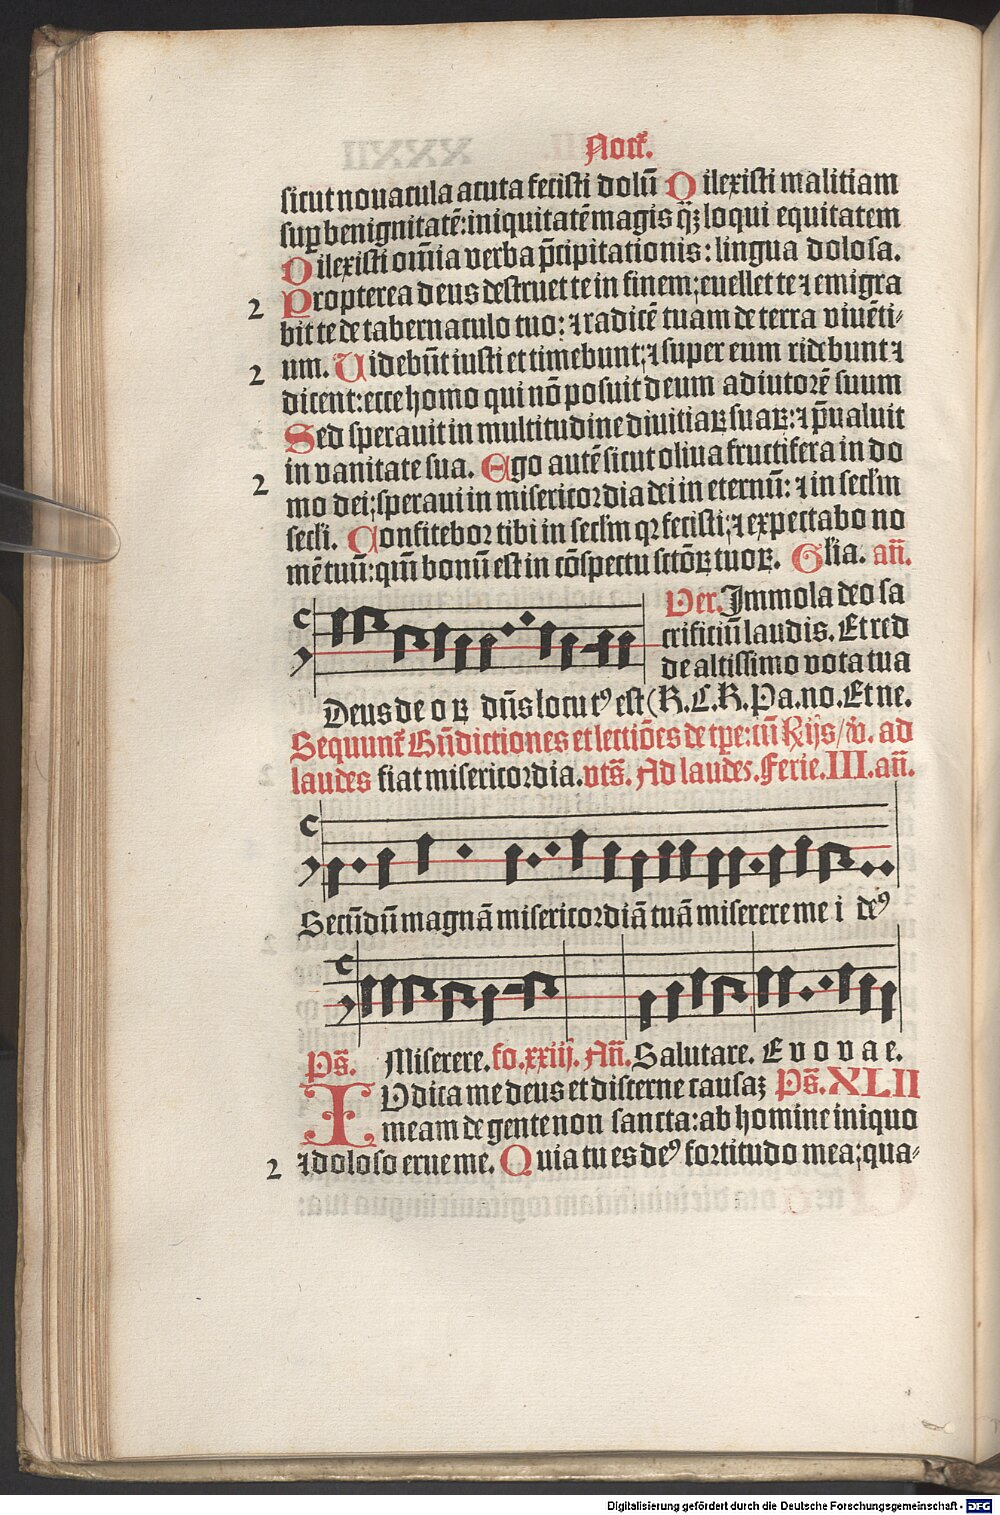 Noct̄.
sicut nouacula acuta fecisti dolū Dilexisti malitiam
sup̱ benignitatē: iniquitatē magis q̄ꝫ loqui equitatem
Dilexisti om̄ia verba p̄cipitationis: lingua dolosa.
2 Propterea deus destruet te in finem; euellet te ⁊ emigra
bit te de tabernaculo tuo: ⁊ radicē tuam de terra viuēti⸗
2 um. Videbūt iusti et timebunt; ⁊ super eum ridebunt ⁊
dicent: ecce homo qui nō posuit deum adiutorē suum
Sed sperauit in multitudine diuitiaꝝ suaꝝ: ⁊ p̄ualuit
in vanitate sua. Ego autē sicut oliua fructifera in do
2 mo dei; speraui in misericordia dei in eternū: ⁊ in secl'm
secl'i. Confitebor tibi in secl'm qꝛ fecisti; ⁊ expectabo no
mē tuū: qm̄ bonū est in cōspectu sctōꝝ tuoꝝ. Gl'ia. an̄.
Ver. Immola deo sa
crificiū laudis. Et red
de altissimo vota tua
Deus deoꝝ dn̄s locutꝰ est (R. C. R. Pa. no. Et ne.
Sequunt̄ Bn̄dictiones et lectiōes de tp̄e: cū Rijs/ v̄. ad
laudes fiat misericordia. vts̄. Ad laudes. Ferie. III. an̄.
Secūdū magnā misericordiā tuā miserere mei deꝰ
Ps̄. Miserere. fo. xxiij. An̄. Salutare. E v o v a e.
IVdica me deus et discerne causaꝫ Ps̄. XLII
meam de gente non sancta: ab homine iniquo
2 ⁊ doloso erue me. Quia tu es deꝰ fortitudo mea; qua⸗
Digitalisierung gefördert durch die Deutsche Forschungsgemeinschaft - DFG